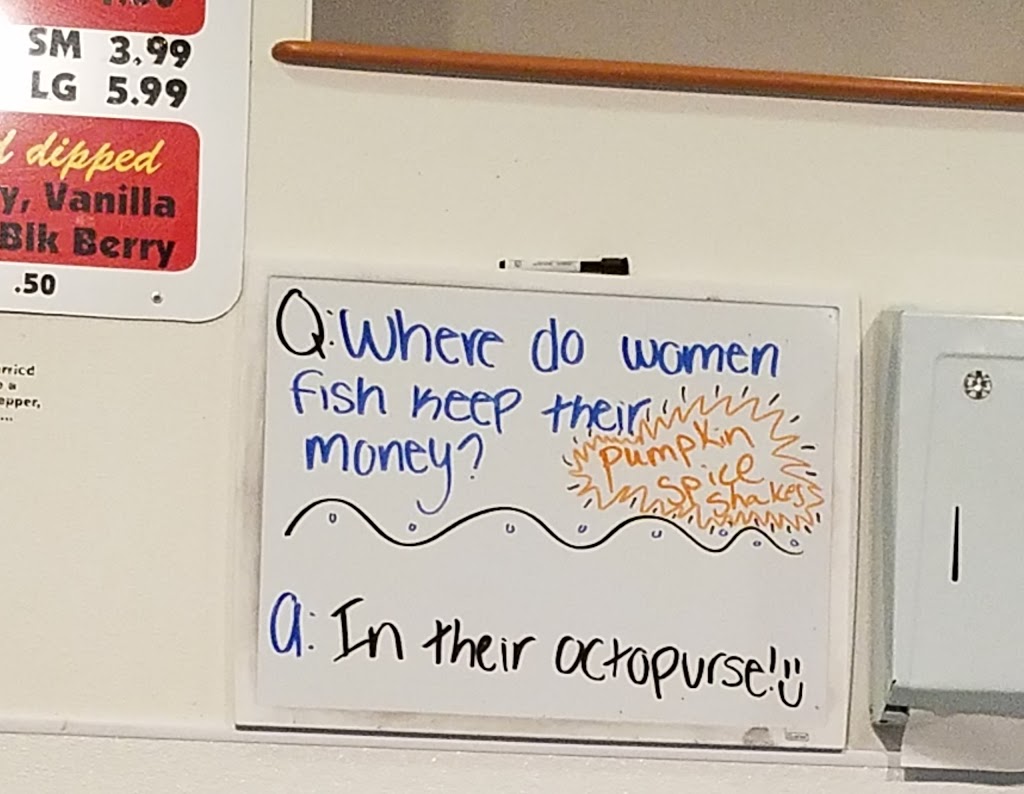 SM 3.99
LG 5.99
dipped
Vanilla
Blk Berry
.50
epper,
Q: Where do women
fish keep their
money?
pumpkin
spice
shakes
a: In their octopurse!